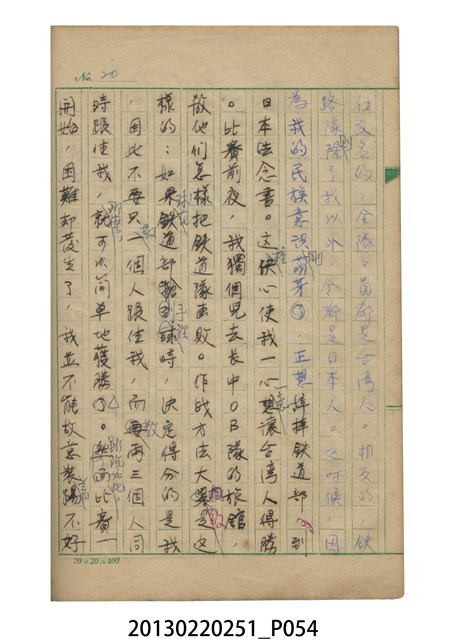 No. 20
位交名的,全隊々員都是台湾人。相反的,鉄
路隊除了我以外,全都是日本人。這时候,因
為我的民族意识剛萌芽,正想摔掉鉄道部,到
日本去念書。這種决心使我一心一意想讓台湾人得勝
。比賽前夜,我獨個兒去長中OB隊的旅館,
教他们怎樣把鉄道隊击敗。作战方法大概是这
樣的:如果鉄道部搶到球時,決定得分的是我
,因此不要只一個人跟住我,而要两三個人同
時跟住我,就可以简单地獲勝了。雖説如此,比賽一
開始,困難却發生了,我並不能故意裝着踢不好
20×20=400
20130220251_P054